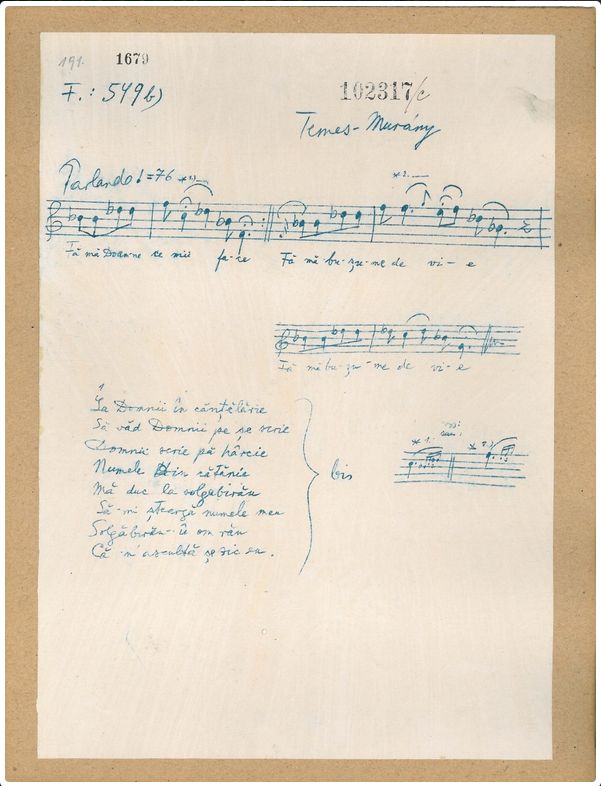 191.
1679
F.: 549b)
102317/c
Temes-Murány
Parlando ♩=76 *1.) *2.
Fă mă Doam-ne ce mii fa-ce Fă mă bu-zu-ne de vi-e
Fă mă bu-zu-ne de vi-e
1
La Domnii în cănțelărie
Să văd Domnii pe ce scrie
Domnii scrie pă hârcie
Numele din cătănie
Mă duc la solgabirău
Să-mi șteargă numele meu
Solgăbirău-i om rău
Că n'ascultă ce zic eu.
bis
*1. *2.)